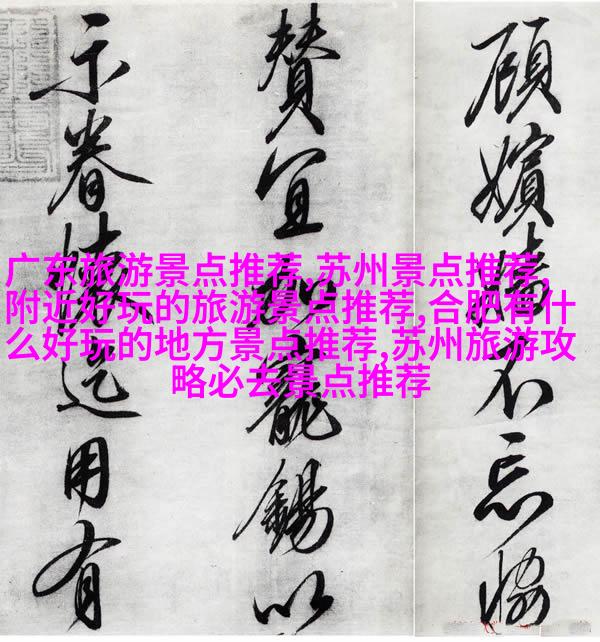 顧嬪不忘恊
贊宜寵錫以
示眷用有
广东旅游景点推荐,苏州景点推荐,
附近好玩的旅游景点推荐,合肥有什
么好玩的地方景点推荐,苏州旅游攻
略必去景点推荐